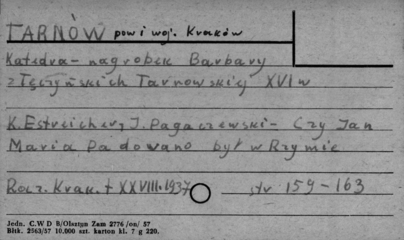 TARNÓW pow i woj. Kraków
Katedra - nagrobek Barbary
z Tęczyńskich Tarnowskiej XVI w
K. Estreicher, J. Pagaczewski - Czy Jan
Maria Padowano był w Rzymie
Rocz. Krak. t XXVIII. 1937 str 159-163
Jedn. C.W D B/Olsztyn Zam 2776 /on/ 57
Bltk. 2563/57 10.000 szt. karton kl. 7 g 220.